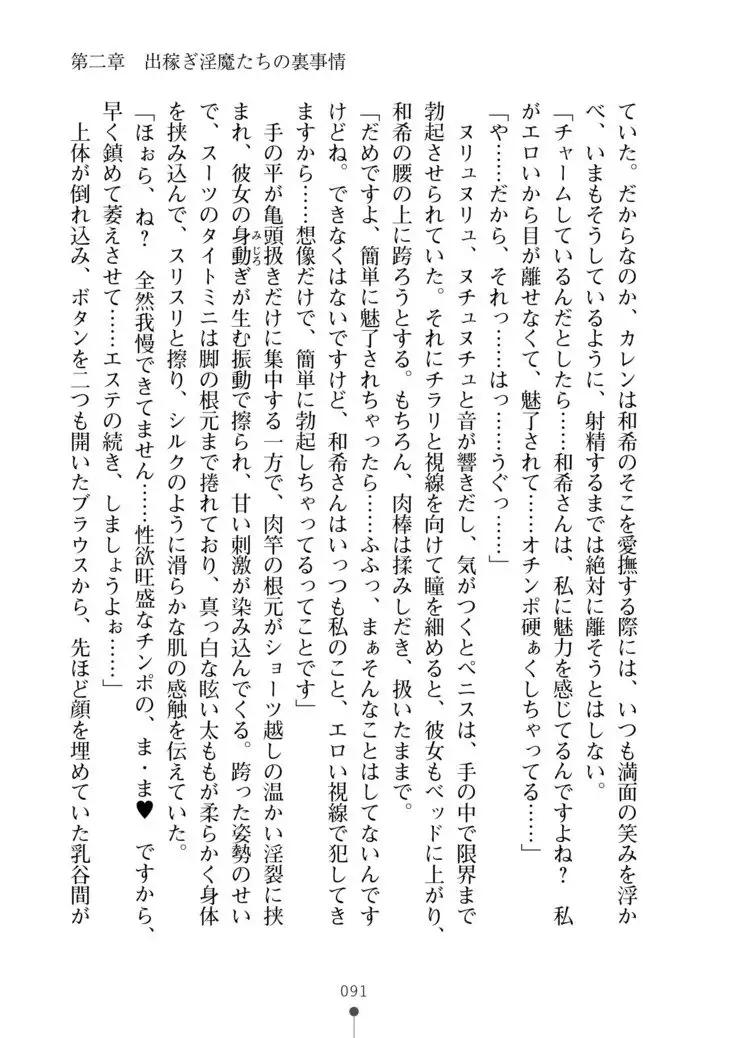 第二章　出稼ぎ淫魔たちの裏事情
ていた。だからなのか、カレンは和希のそこを愛撫する際には、いつも満面の笑みを浮か
べ、いまもそうしているように、射精するまでは絶対に離そうとはしない。
「チャームしているんだとしたら……和希さんは、私に魅力を感じてるんですよね？　私
がエロいから目が離せなくて、魅了されて……オチンポ硬ぁくしちゃってる……」
「や……だから、それっ……はっ……うぐっ……」
ヌリュヌリュ、ヌチュヌチュと音が響きだし、気がつくとペニスは、手の中で限界まで
勃起させられていた。それにチラリと視線を向けて瞳を細めると、彼女もベッドに上がり、
和希の腰の上に跨ろうとする。もちろん、肉棒は揉みしだき、扱いたままで。
「だめですよ、簡単に魅了されちゃったら……ふふっ、まぁそんなことはしてないんです
けどね。できなくはないですけど、和希さんはいっつも私のこと、エロい視線で犯してき
ますから……想像だけで、簡単に勃起しちゃってるってことです」
手の平が亀頭扱きだけに集中する一方で、肉竿の根元がショーツ越しの温かい淫裂に挟
まれ、彼女の身動ぎが生む振動で擦られ、甘い刺激が染み込んでくる。跨った姿勢のせい
で、スーツのタイトミニは脚の根元まで捲れており、真っ白な眩い太ももが柔らかく身体
を挟み込んで、スリスリと擦り、シルクのように滑らかな肌の感触を伝えていた。
「ほぉら、ね？　全然我慢できてません……性欲旺盛なチンポの、ま・ま♥　ですから、
早く鎮めて萎えさせて……エステの続き、しましょうよぉ……」
上体が倒れ込み、ボタンを二つも開いたブラウスから、先ほど顔を埋めていた乳谷間が
みじろ
091